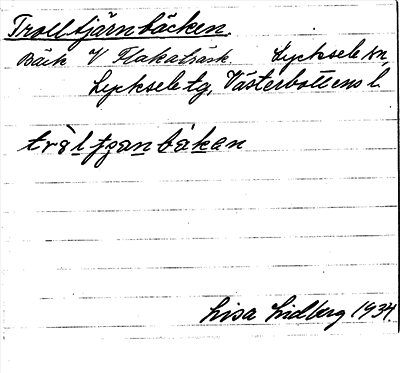 Trolltjärnbäcken.
Bäck V Flakaträsk Lycksele kn,
Lycksele tg, Västerbottens l.
tròl tjan bäkan
Lisa Lidberg 1934.